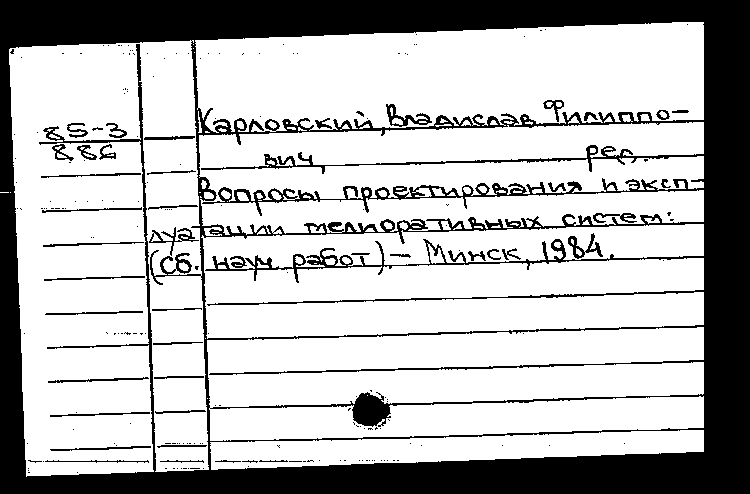 85-3
886
Карловский, Владислав Филиппо-
вич, ред.
Вопросы проектирования и эксп-
луатации мелиоративных систем:
(Сб. науч. работ). – Минск, 1984.